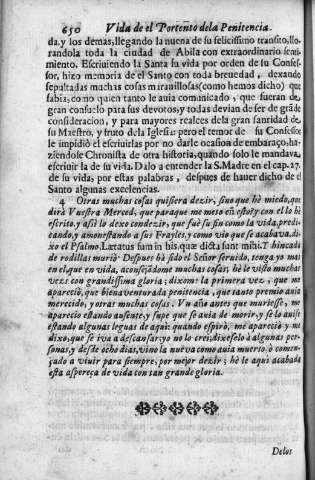 650 Vida de el Portento dela Penitencia.
da, y los demas, llegando la nueua de su felicissimo transito, llo-
randola toda la ciudad de Abila con extraordinario senti-
miento. Escriuiendo la Santa su vida por orden de su Confes-
sor, hizo memoria de el Santo con toda breuedad, dexando
sepultadas muchas cosas mirauillosas (como hemos dicho) que
sabia, como quien tanto le auia comunicado, que fueran de
gran consuelo para sus devotos, y todas devian de ser de grãde
consideracion, y para mayores realces dela gran santidad de
su Maestro, y fruto dela Iglesia: pero el temor de su Confesor
le impidió el escriuirlas por no darle ocasion de embaraço, ha-
ziendole Chronista de otra historia, quando solo le mandava
escriuir la de su vida. Dalo a entender la S. Madre en el cap. 27.
de su vida, por estas palabras, despues de hauer dicho de el
Santo algunas excelencias.
4 Otras muchas cosas quisiera dezir, sino que hè miedo, que
dirà Vuestra Merced, que paraque me meto en esto; y con el lo hè
escrito, y assi lo dexo con dezir, que fuè su fin como la vida, predi-
cando, y amonestando a sus Frayles, y como viò que se acabava, di-
xo el Psalmo, Lætatus sum in his, quæ dicta sunt mihi. Y hincado
de rodillas muriò. Despues hà sido el Señor seruido, tenga yo mas
en el, que en vida, aconsejãdome muchas cosas; hè le visto muchas
vezes con grandissima gloria; dixome la primera vez, que me
apareciò, que bienaventurada penitencia, que tanto premio auia
merecido, y otras muchas cosas. Vn año antes que muriesse, me
apareciò estando ausente, y supe que se auia de morir, y se lo auisè
estando algunas leguas de aqui: quando espirò, me apareciò y me
dixo, que se iva a descansar: yo no lo crei, dixeselo à algunas per-
sonas, y desde ocho dias, vino la nueva como auia muerto, ò comen-
çado a viuir para siempre, por mejor dezir; hè le aqui acabada
esta aspereça de vida con tan grande gloria.
Delos